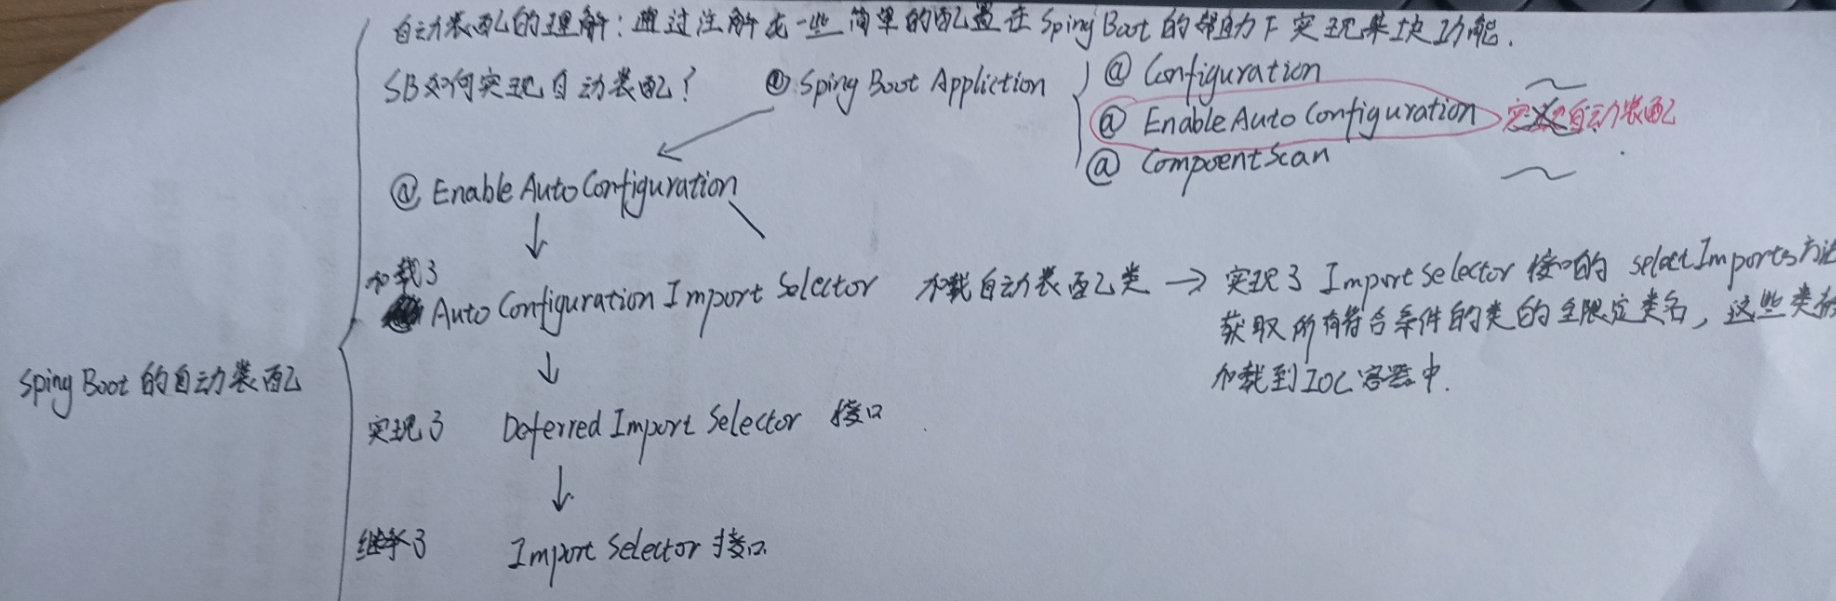 自动装配的理解：通过注解或一些简单的配置在Sping Boot的帮助下实现某块功能.
SB如何实现自动装配？ @Sping Boot Appliction
@ Configuration
@ EnableAuto Configuration 自动装配
@ CompoentScan
@ Enable Auto Configuration
加载了
Auto Configuration Import Selector 加载自动装配类 → 实现了 Import Selector 接口的 selectImports方法
获取所有符合条件的类的全限定类名，这些类被
加载到IOC容器中.
Sping Boot 的自动装配
实现了 Deferred Import Selector 接口
继承了 Import Selector 接口